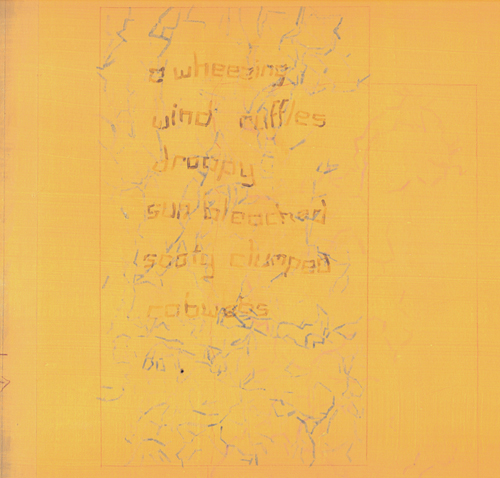 a wheezing
wind ruffles
droopy
sun bleached
sooty clumped
cobwebs